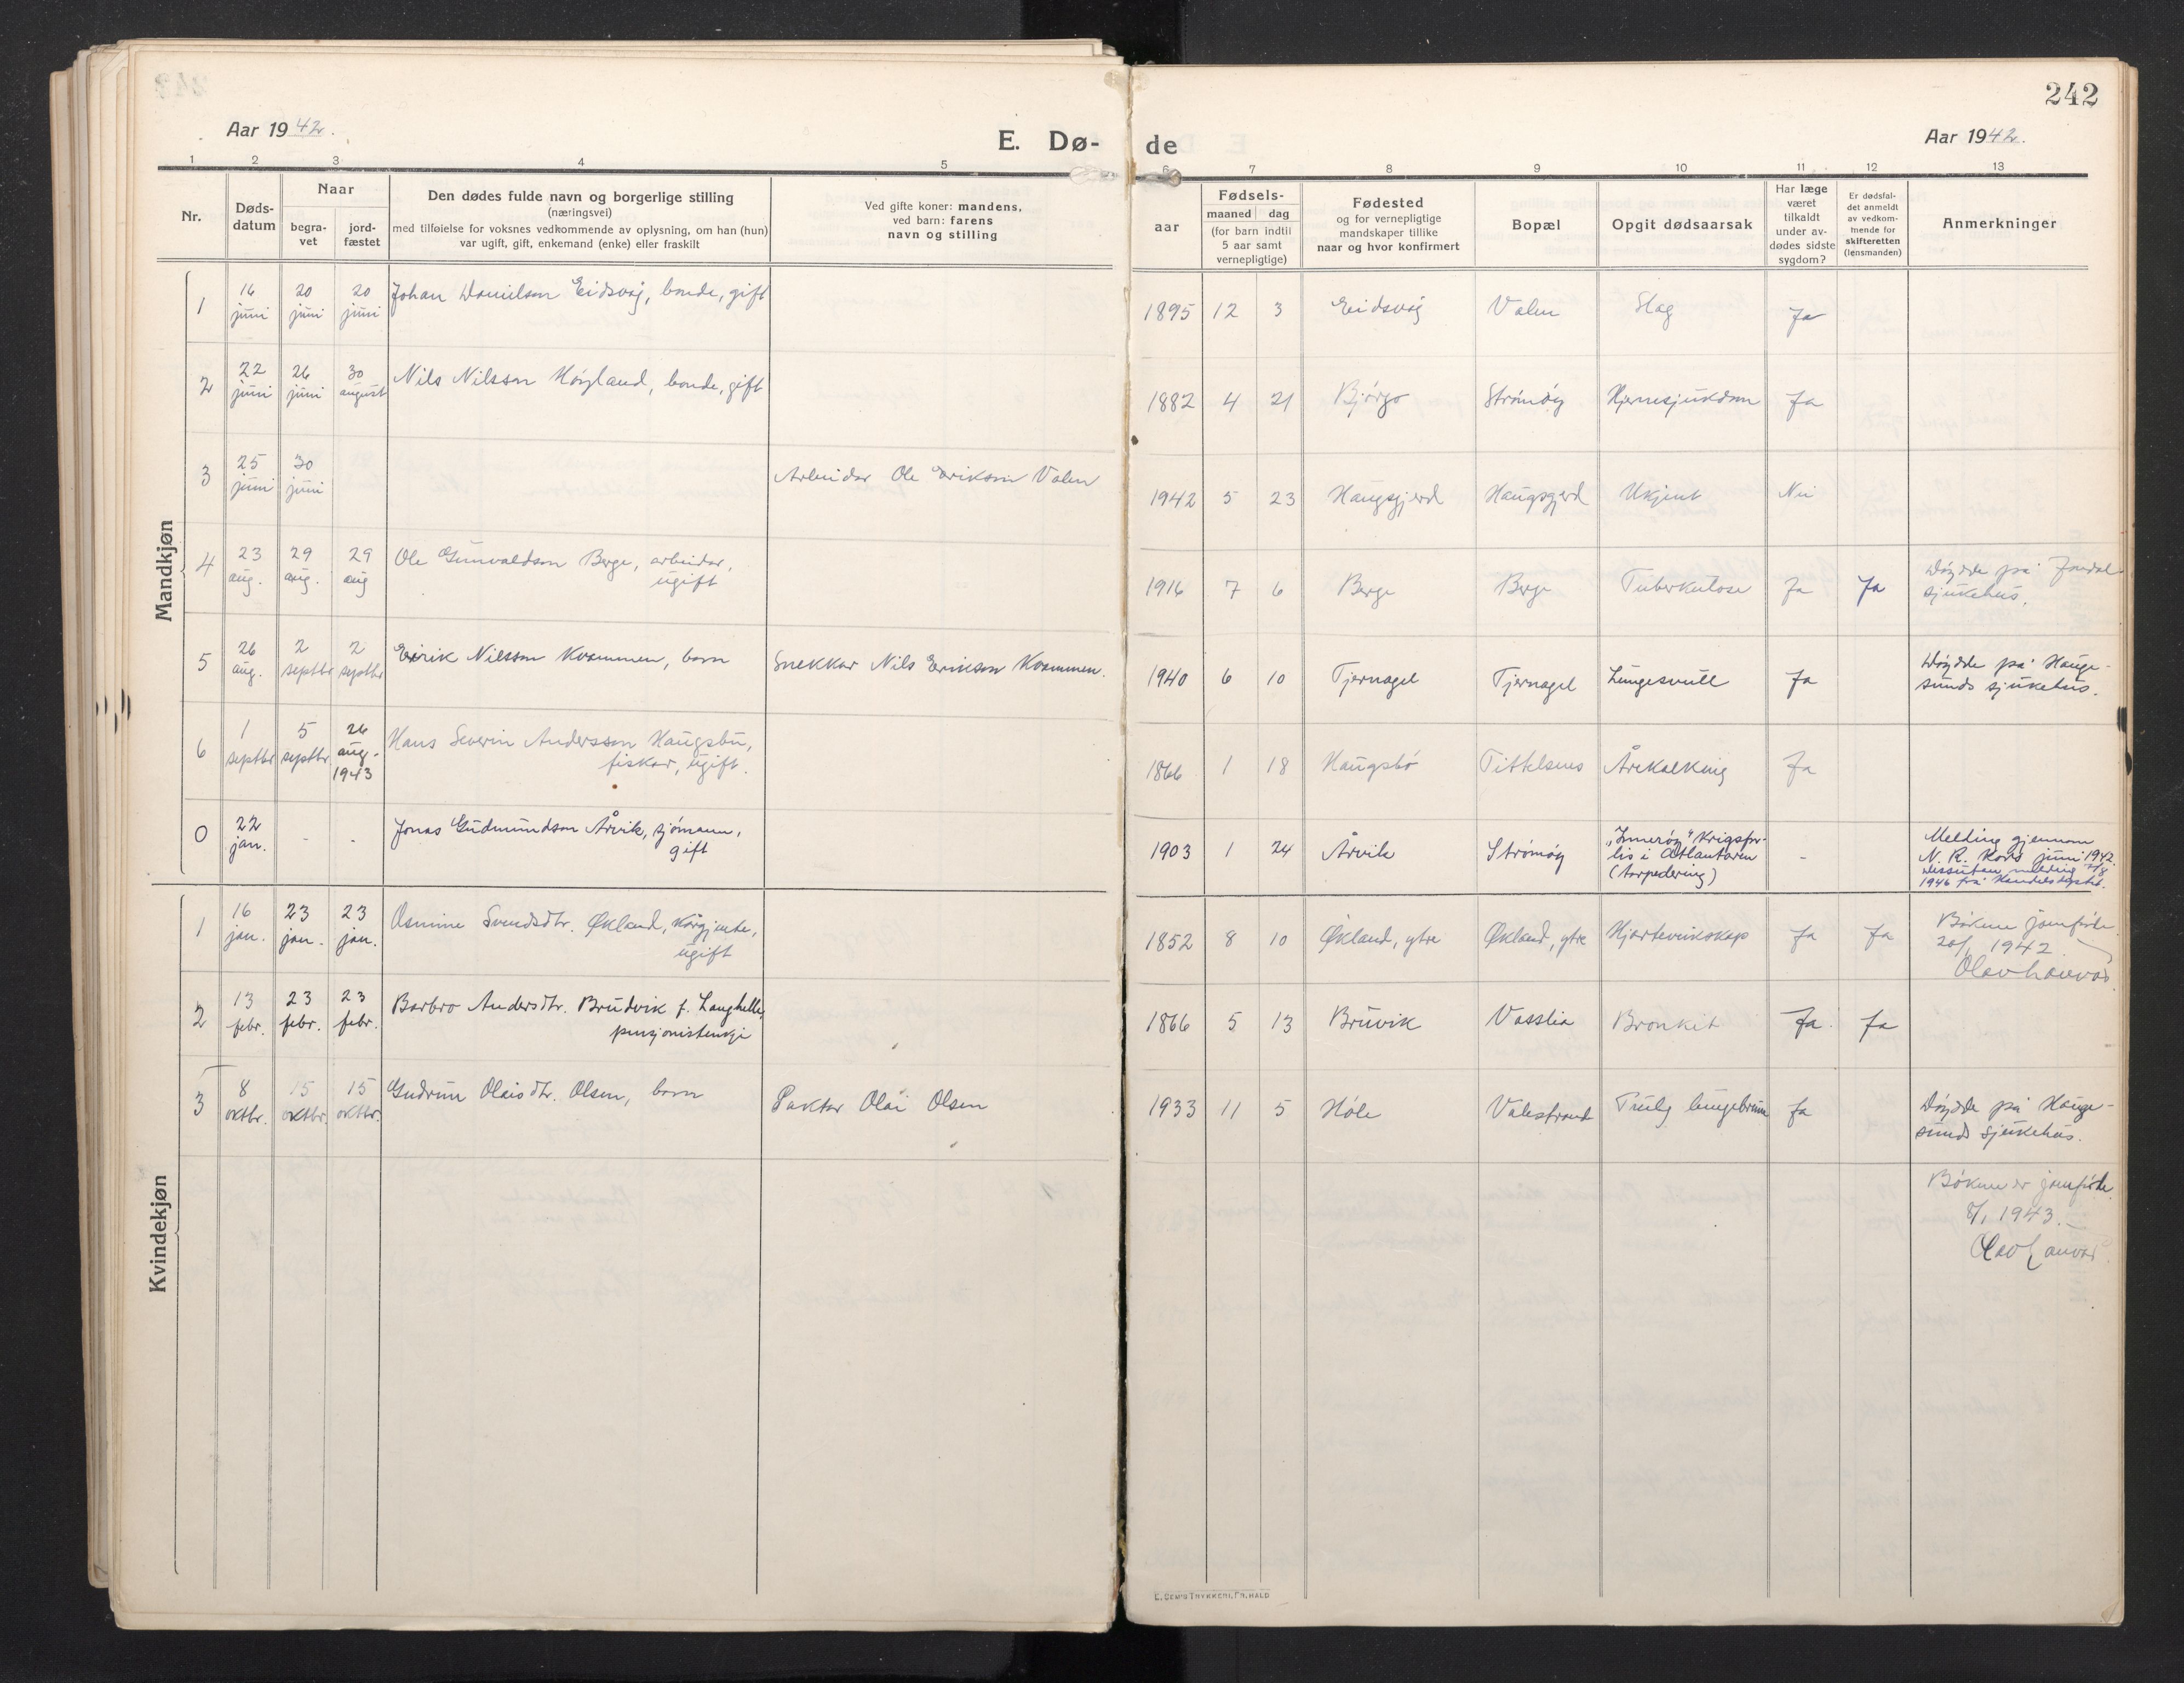 242
Aar 1942.
E. Dø-
de
Aar 1942.
1 2 3 4 5 6 7 8 9 10 11 12 13
Nr.
Døds-
datum
Naar
begra-
vet
jord-
fæstet
Den dødes fulde navn og borgerlige stilling
(næringsvei)
med tilføielse for voksnes vedkommende av oplysning, om han (hun)
var ugift, gift, enkemand (enke) eller fraskilt
Ved gifte koner: mandens,
ved barn: farens
navn og stilling
aar
Fødsels-
maaned dag
(for barn indtil
5 aar samt
vernepligtige)
Fødested
og for vernepligtige
mandskaper tillike
naar og hvor konfirmert
Bopæl
Opgit dødsaarsak
Har læge
været
tilkaldt
under av-
dødes sidste
sygdom?
Er dødsfal-
det anmeldt
av vedkom-
mende for
skifteretten
(lensmanden)
Anmerkninger
Mandkjøn
1 16 juni 20 juni 20 juni Johan Danielson Eidsvåg, bonde, gift 1895 12 3 Eidsvåg Valen Slag Ja
2 22 juni 26 juni 30 august Nils Nilsson Høyland, bonde, gift 1882 4 21 Bjørgo Strømøy Hjernesjukdom Ja
3 25 juni 30 juni Arbeidar Ole Erikson Valen 1942 5 23 Haugsgjerd Haugsgjerd Ukjent Nei
4 23 aug. 29 aug. 29 aug Ole Gunvaldson Berge, arbeidar,
ugift 1916 7 6 Berge Berge Tuberkulose Ja Ja Døydde på Jondal
sjukehus.
5 26 aug. 2 septbr 2 septbr Eirik Nilsson Kvammen, barn Snekkar Nils Erikson Kvammen. 1940 6 10 Tjernagel Tjernagel Lungesvull Ja Døydde på Hauge-
sunds sjukehus.
6 1 septbr 5 septbr. 26 aug. 1943 Hans Severin Andersson Haugsbø,
fiskar, ugift. 1866 1 18 Haugsbø Tittelsnes Årekalking Ja
0 22 jan. - - Jonas Gudmundson Årvik, sjømann,
gift 1903 1 24 Årvik Strømøy "Innerøy" Krigsfor-
lis i Atlantaren
(torpedering) - Melding gjennom
N. R. Kors juni 1942.
Dessutan melding
1946 frå Handelsdept.
Kvindekjøn
1 16 jan. 23 jan. 23 jan. Osmine Svendsdtr. Økland, kårgjente,
ugift 1852 8 10 Økland, ytre Økland, ytre Hjarteveikskap Ja Ja Bøkene jamførte
20/1 1942
2 13 febr. 23 febr. 23 febr. Barbro Andersdtr. Brudvik f. Langhelle,
pensjonistenkje 1866 5 13 Bruvik Vasslia Bronkit Ja Ja
3 8 oktbr. 15 oktbr. 15 oktbr. Gudrun Olaisdtr. Olsen, barn Paktar Olai Olsen 1933 11 5 Høle Valestrand Truleg lungebrune Ja Døydde på Hauge-
sunds sjukehus.
Bøkene er jamførte
8/1 1943.
E. SEM'S TRYKKERI, FR. HALD